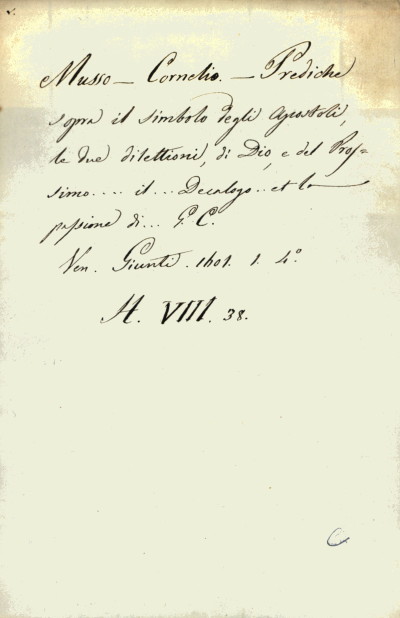 Musso — Cornelio. — Prediche
sopra il simbolo degli Apostoli,
le due dilettioni, di Dio, e del Pros=
simo.... il... Decalogo.. et la
passione di... G. C.
Ven. Giunti. 1601. 1. 4.°
A. VIII. 38.